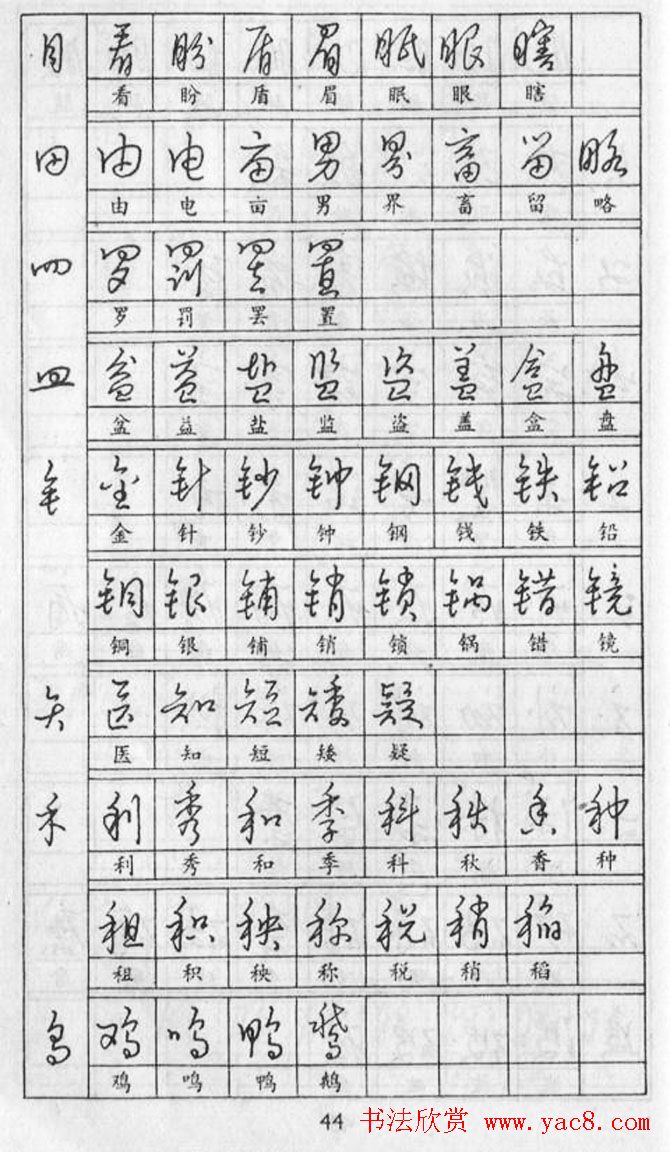 目 看 盼 盾 眉 眠 眼 瞎
看 盼 盾 眉 眠 眼 瞎
田 由 电 亩 男 界 畜 留 略
由 电 亩 男 界 畜 留 略
罒 罗 罚 罢 置
罗 罚 罢 置
皿 盆 益 盐 监 盗 盖 盒 盘
盆 益 盐 监 盗 盖 盒 盘
钅 金 针 钞 钟 钢 钱 铁 铅
金 针 钞 钟 钢 钱 铁 铅
铜 银 铺 销 锁 锅 错 镜
铜 银 铺 销 锁 锅 错 镜
矢 医 知 短 矮 疑
医 知 短 矮 疑
禾 利 秀 和 季 科 秋 香 种
利 秀 和 季 科 秋 香 种
租 积 秧 称 税 稍 稻
租 积 秧 称 税 稍 稻
鸟 鸡 鸣 鸭 鹅
鸡 鸣 鸭 鹅
44 书法欣赏 www.yac8.com